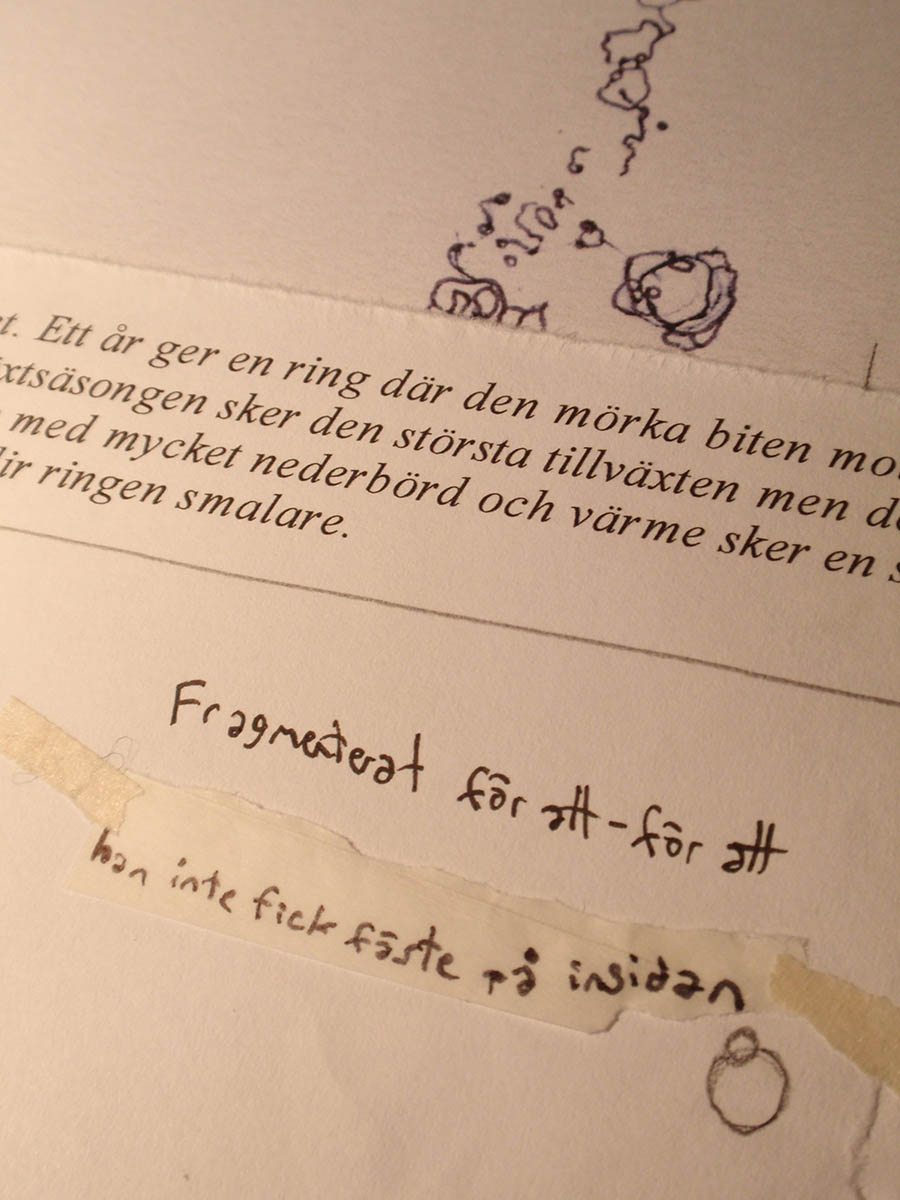 et. Ett år ger en ring där den mörka biten mo
ixtsäsongen sker den största tillväxten men de
med mycket nederbörd och värme sker en s
lir ringen smalare.
Fragmenterat för att-för att
han inte fick fäste på insidan